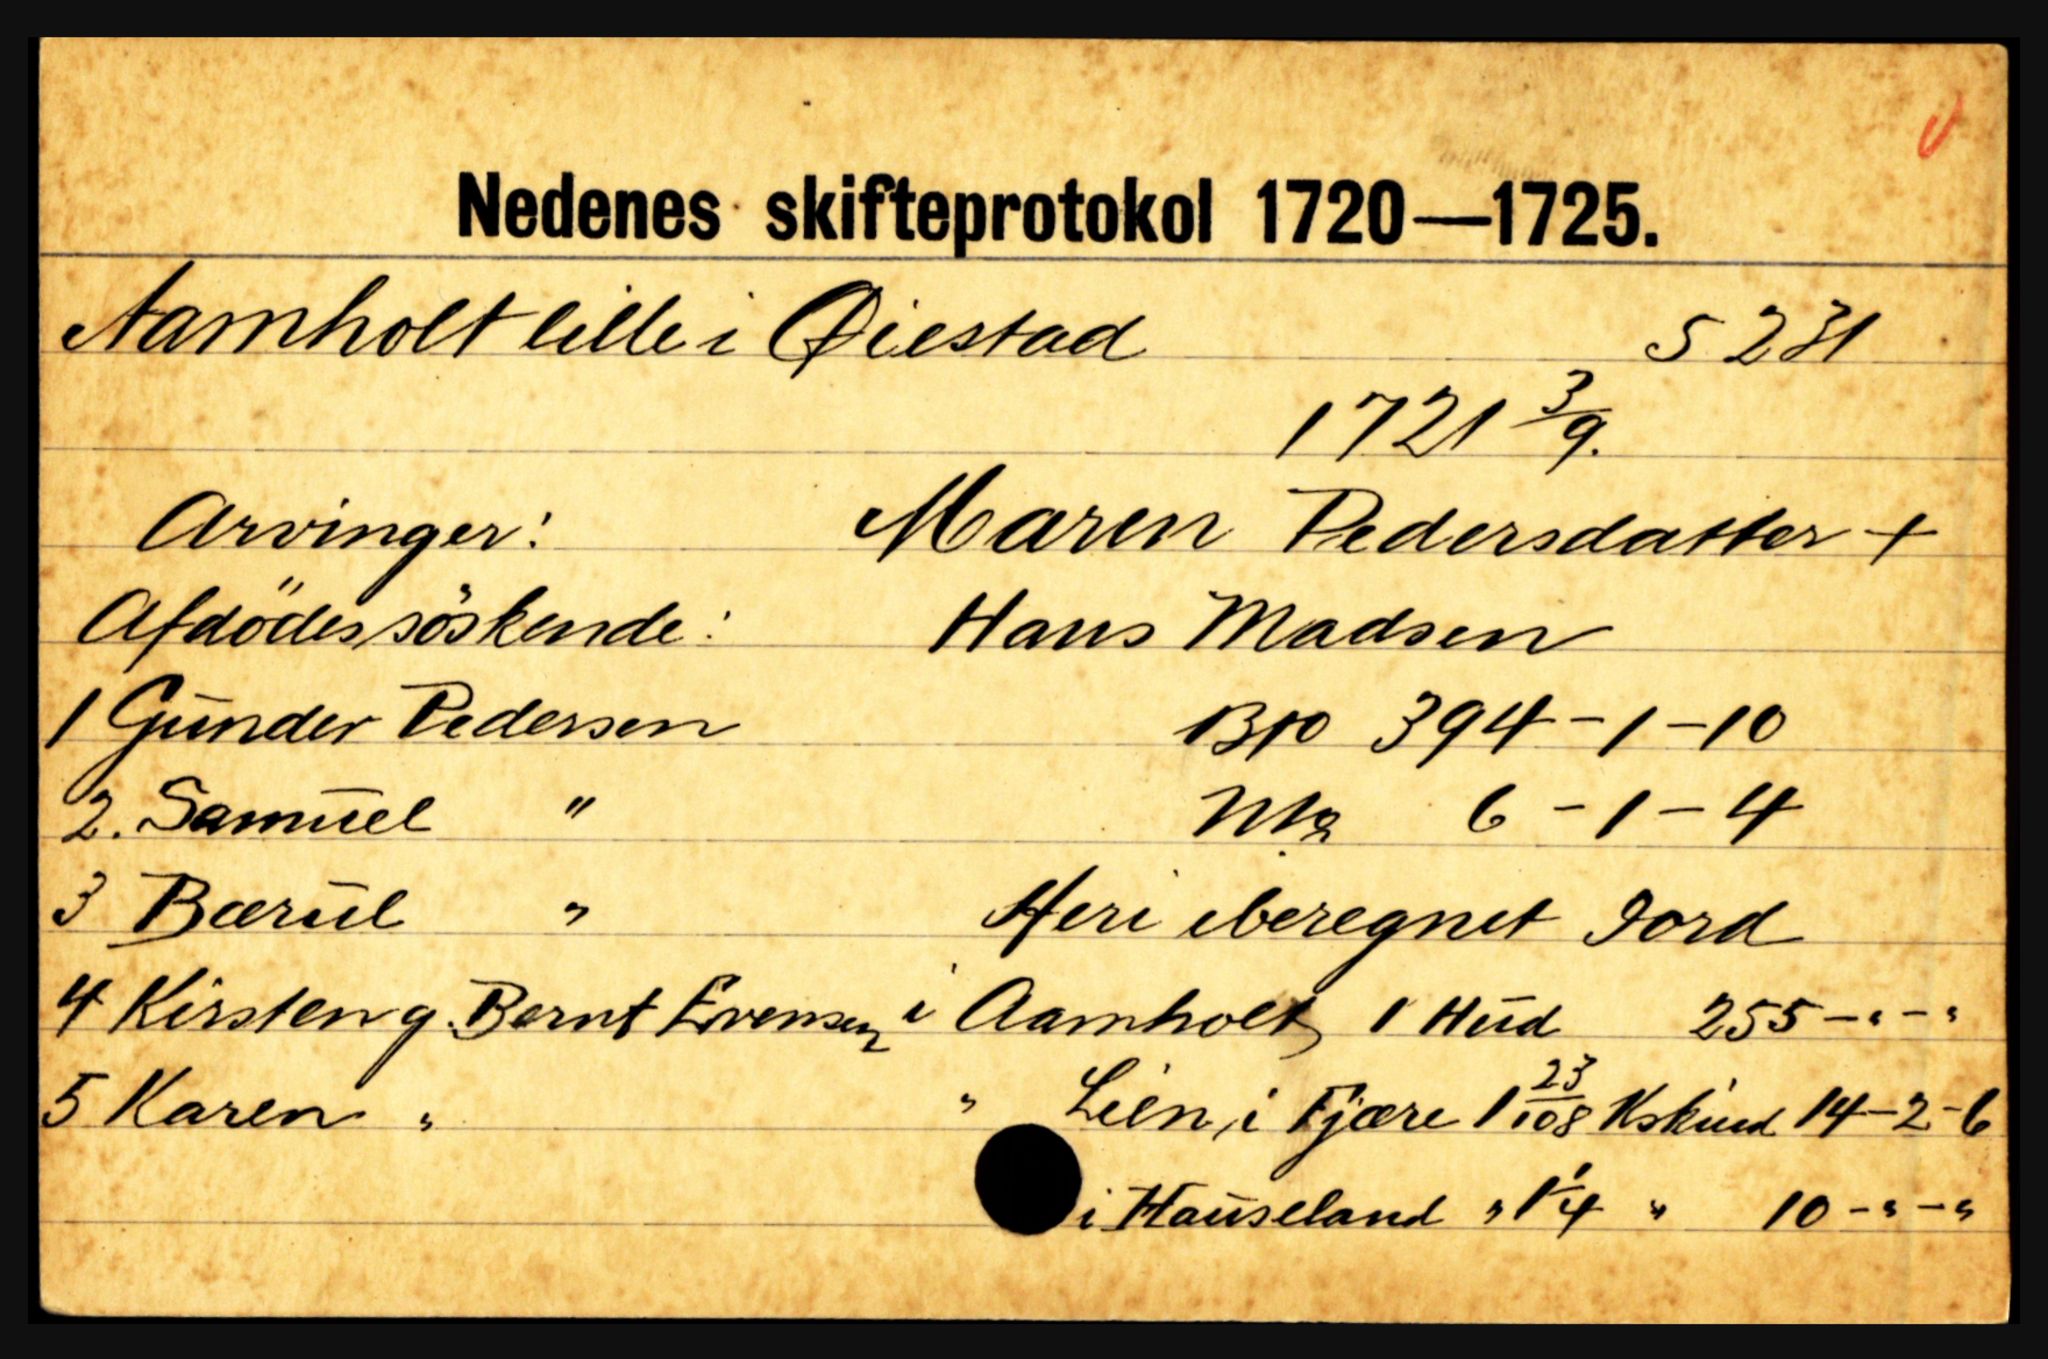 Nedenes skifteprotokol 1720—1725.
Aamholt lille i Øiestad S 231
1721 3/9.
Arvinger: Maren Pedersdatter +
Afdödes söskende: Hans Madsen
1 Gunder Pedersen Bfo 394-1-10
2. Samuel " Nto 6-1-4
3 Bærul " Heri iberegnet Jord
4 Kirsten g. Bernt Evensen i Aamholt 1 Hud 255-"-"
5 Karen " " Lien i Fjære 1 23/108 Kskind 14-2-6
i Hauseland " 1 1/4 " 10-"-"